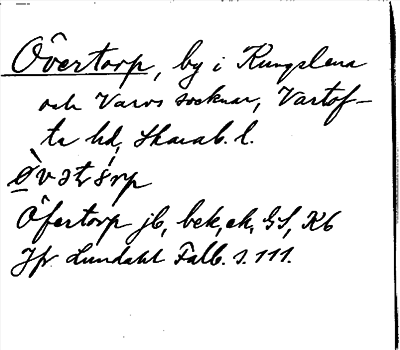 Övertorp, by i Kungslena
och Varvs socknar, Vartof-
ta hd, Skarab. l.
Öfertorp jb, bek, ek, GS, Kb
Jfr Lundahl Falb. s. 111.